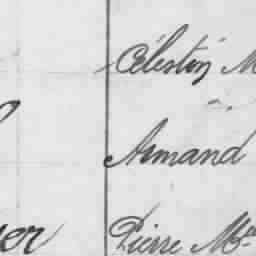 Célestin M
Armand
Pierre M